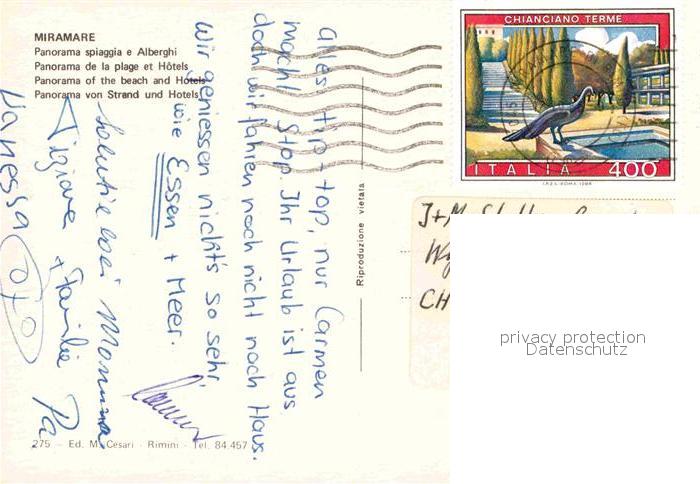 MIRAMARE
Panorama spiaggia e Alberghi
Panorama de la plage et Hôtels
Panorama of the beach and Hotels
Panorama von Strand und Hotels
alles tip + top, nur Carmen
macht Stop. Ihr Urlaub ist aus
doch wir fahren noch nicht nach Haus.
Wir geniessen nicht's so sehr,
wie Essen + Meer.
Tiziana + Familie
Vanessa
Riproduzione vietata
275 - Ed. M. Cesari - Rimini - Tel. 84.457
CHIANCIANO TERME
ITALIA 400
I.P.Z.S.-ROMA-1986
J+M
CH
privacy protection
Datenschutz